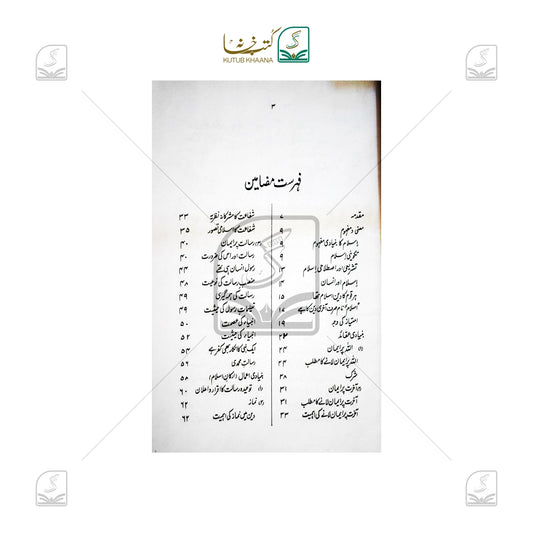 کتب خانہ
KUTUB KHAANA
۳
فہرست مضامین
مقدمہ ۷
معنی و مفہوم ۹
اسلام کا بنیادی مفہوم ۹
تکوینی اسلام ۹
تشریعی اور اصطلاحی اسلام ۱۳
اسلام اور انسان ۱۴
ہر قوم کا دین اسلام تھا ۱۵
"اسلام" نام صرف آخری دین کا ہے ۱۷
امتیاز کی وجہ ۱۹
بنیادی عقائد ۲۲
(۱) اللہ پر ایمان ۲۴
اللہ پر ایمان لانے کا مطلب ۲۴
شرک ۲۸
(۲) آخرت پر ایمان ۳۱
آخرت پر ایمان لانے کا مطلب ۳۱
آخرت پر ایمان لانے کی اہمیت ۳۳
شفاعت کا مشرکانہ نظریہ ۳۳
شفاعت کا اسلامی تصور ۳۵
(۳) رسالت پر ایمان ۴۰
رسالت اور اس کی ضرورت ۴۰
رسول انسان ہی تھے ۴۴
منصب رسالت کی نوعیت ۴۸
رسالت کی ہمہ گیری ۴۹
تعلیمات رسول کی حیثیت ۴۹
انبیاء کی عصمت ۵۰
انبیاء کی حیثیت ۵۲
ایک نبی کا انکار بھی کفر ہے ۵۴
رسالت محمدی ۵۶
بنیادی اعمال (ارکان اسلام) ۵۸
(۱) توحید و رسالت کا اقرار و اعلان ۶۰
(۲) نماز ۶۲
دین میں نماز کی اہمیت ۶۲